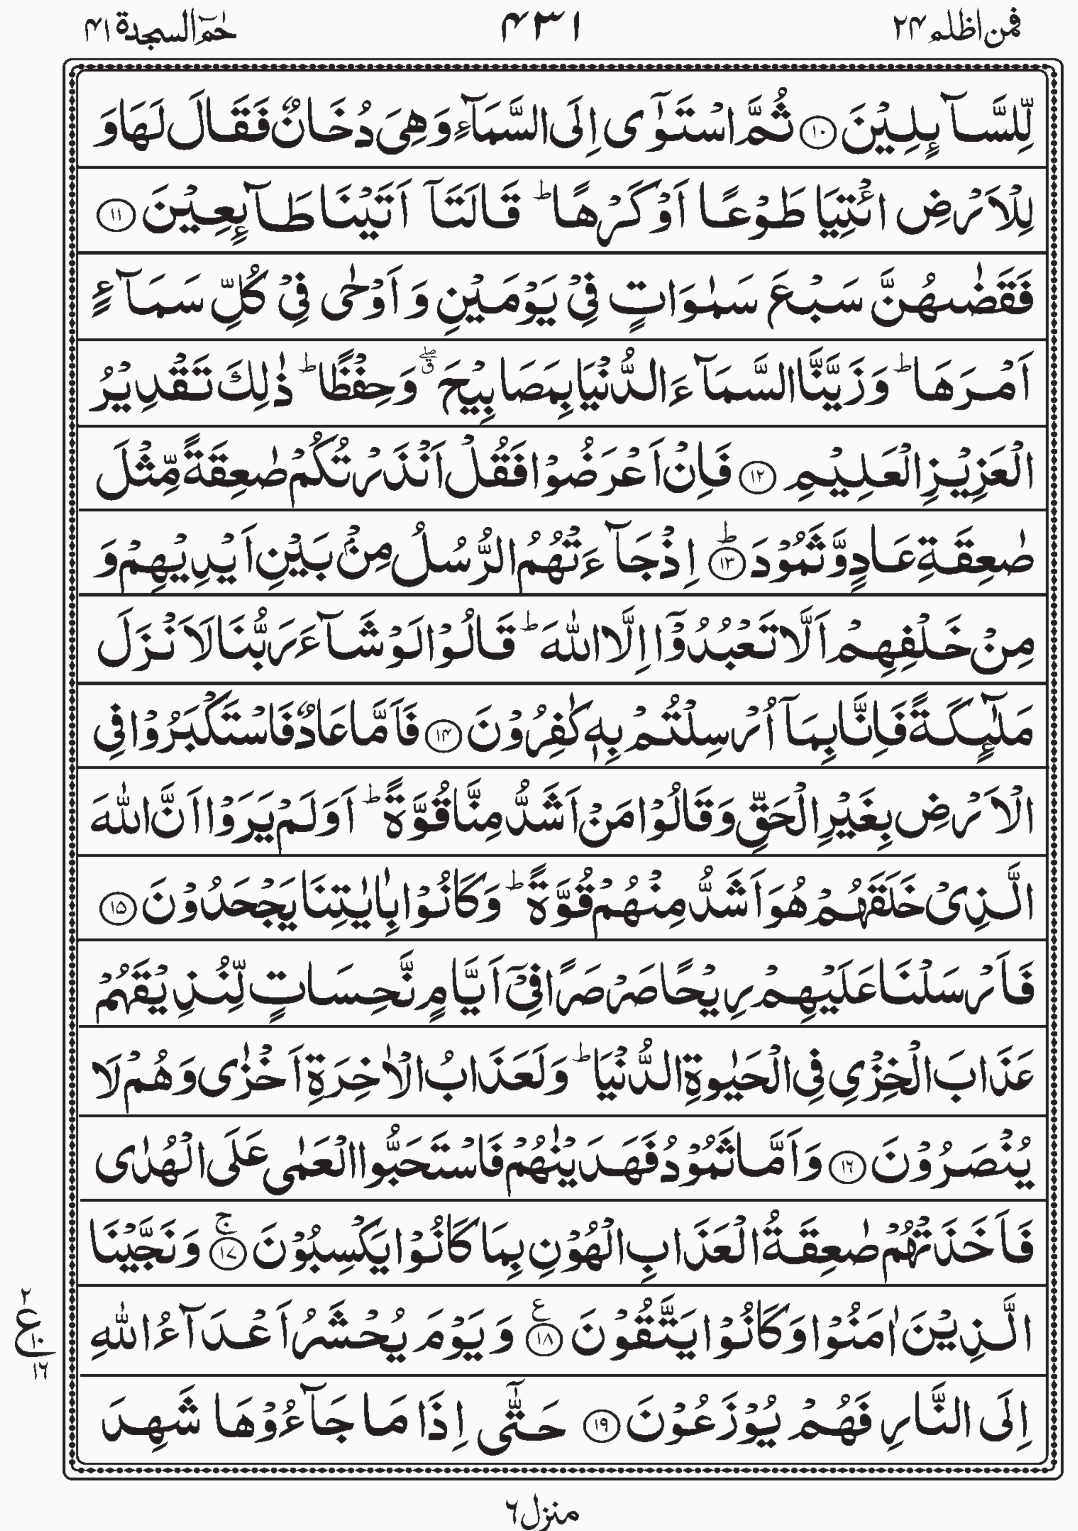 فمن اظلم ۲۴ ۴۳۱ حٰمٓ السجدة ۴۱
لِّلسَّآىِٕلِيْنَ ۝۱۰ ثُمَّ اسْتَوٰۤى اِلَى السَّمَآءِ وَهِىَ دُخَانٌ فَقَالَ لَهَا وَ
لِلْاَرْضِ ائْتِيَا طَوْعًا اَوْ كَرْهًا ؕ قَالَتَاۤ اَتَيْنَا طَآىِٕعِيْنَ ۝۱۱
فَقَضٰىهُنَّ سَبْعَ سَمٰوَاتٍ فِىْ يَوْمَيْنِ وَ اَوْحٰى فِىْ كُلِّ سَمَآءٍ
اَمْرَهَا ؕ وَ زَيَّنَّا السَّمَآءَ الدُّنْيَا بِمَصَابِيْحَ ۖق وَحِفْظًا ؕ ذٰلِكَ تَقْدِيْرُ
الْعَزِيْزِ الْعَلِيْمِ ۝۱۲ فَاِنْ اَعْرَضُوْا فَقُلْ اَنْذَرْتُكُمْ صٰعِقَةً مِّثْلَ
صٰعِقَةِ عَادٍ وَّ ثَمُوْدَ ؕ۝۱۳ اِذْ جَآءَتْهُمُ الرُّسُلُ مِنْۢ بَيْنِ اَيْدِيْهِمْ وَ
مِنْ خَلْفِهِمْ اَلَّا تَعْبُدُوْۤا اِلَّا اللّٰهَ ؕ قَالُوْا لَوْ شَآءَ رَبُّنَا لَاَنْزَلَ
مَلٰٓىِٕكَةً فَاِنَّا بِمَاۤ اُرْسِلْتُمْ بِهٖ كٰفِرُوْنَ ۝۱۴ فَاَمَّا عَادٌ فَاسْتَكْبَرُوْا فِى
الْاَرْضِ بِغَيْرِ الْحَقِّ وَقَالُوْا مَنْ اَشَدُّ مِنَّا قُوَّةً ؕ اَوَلَمْ يَرَوْا اَنَّ اللّٰهَ
الَّذِىْ خَلَقَهُمْ هُوَ اَشَدُّ مِنْهُمْ قُوَّةً ؕ وَكَانُوْا بِاٰيٰتِنَا يَجْحَدُوْنَ ۝۱۵
فَاَرْسَلْنَا عَلَيْهِمْ رِيْحًا صَرْصَرًا فِىْۤ اَيَّامٍ نَّحِسَاتٍ لِّنُذِيْقَهُمْ
عَذَابَ الْخِزْىِ فِى الْحَيٰوةِ الدُّنْيَا ؕ وَلَعَذَابُ الْاٰخِرَةِ اَخْزٰى وَهُمْ لَا
يُنْصَرُوْنَ ۝۱۶ وَاَمَّا ثَمُوْدُ فَهَدَيْنٰهُمْ فَاسْتَحَبُّوا الْعَمٰى عَلَى الْهُدٰى
فَاَخَذَتْهُمْ صٰعِقَةُ الْعَذَابِ الْهُوْنِ بِمَا كَانُوْا يَكْسِبُوْنَ ۚ۝۱۷ وَنَجَّيْنَا
الَّذِيْنَ اٰمَنُوْا وَكَانُوْا يَتَّقُوْنَ ع۝۱۸ وَيَوْمَ يُحْشَرُ اَعْدَآءُ اللّٰهِ ۲ ع ۱۰ ۱۶
اِلَى النَّارِ فَهُمْ يُوْزَعُوْنَ ۝۱۹ حَتّٰۤى اِذَا مَا جَآءُوْهَا شَهِدَ
منزل ۶